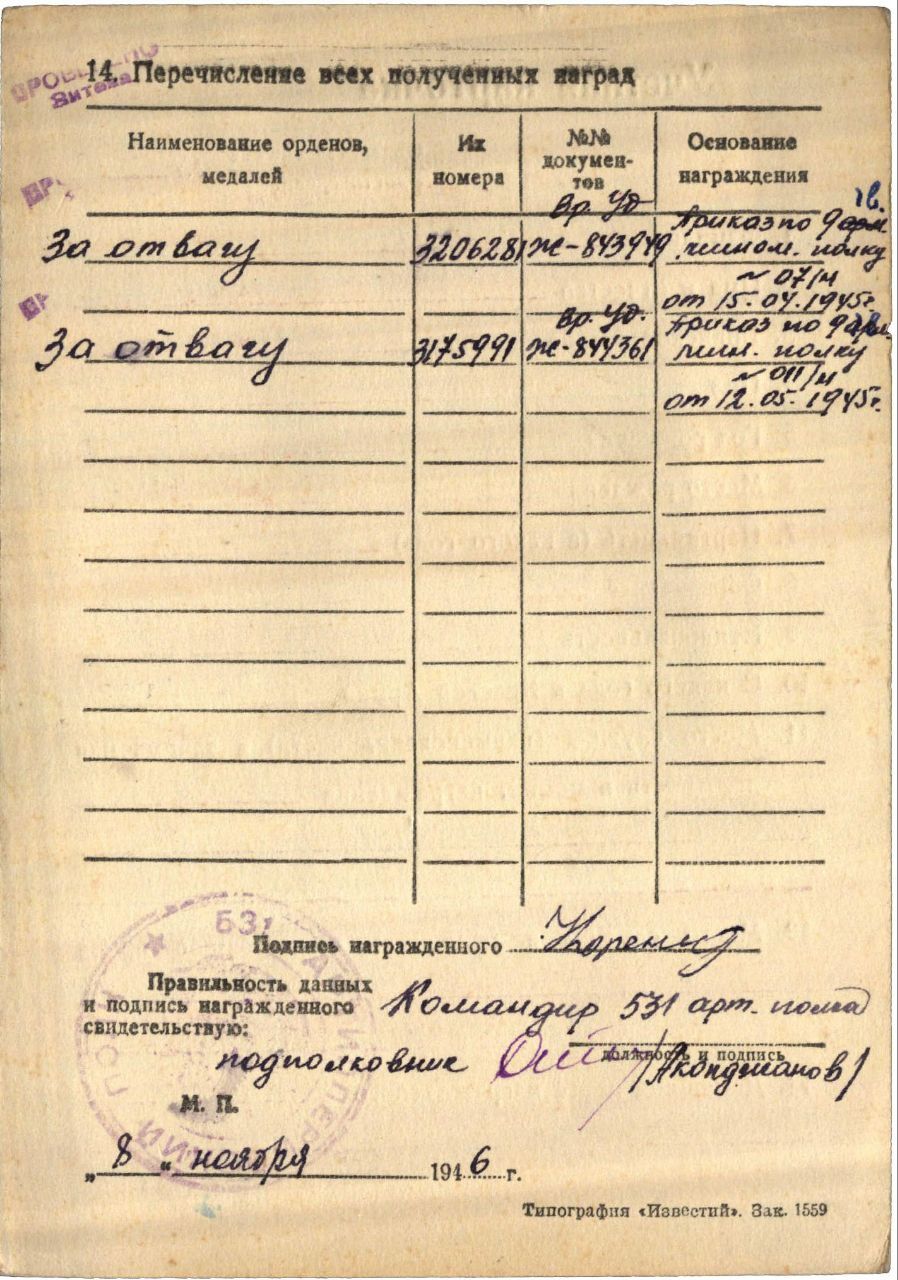 ПРОВЕРЕНО
14. Перечисление всех полученных наград
Наименование орденов, медалей
Их номера
№№ документов
Основание награждения
За отвагу
3206281
Вр. Уд
Ж-843949
гв.
Приказ по 9 арм.
полку
~ 07/н
от 15.04.1945г.
За отвагу
3175991
Вр. Уд.
Ж-844361
Приказ по 9
полку
~ 011/н
от 12.05.1945г.
531
Подпись награжденного
Правильность данных
и подпись награжденного
свидетельствую:
Командир 531 арт. полка
должность и подпись
подполковник
/Акопджанов/
М. П.
„8“ ноября 1946 г.
Типография «Известий». Зак. 1559